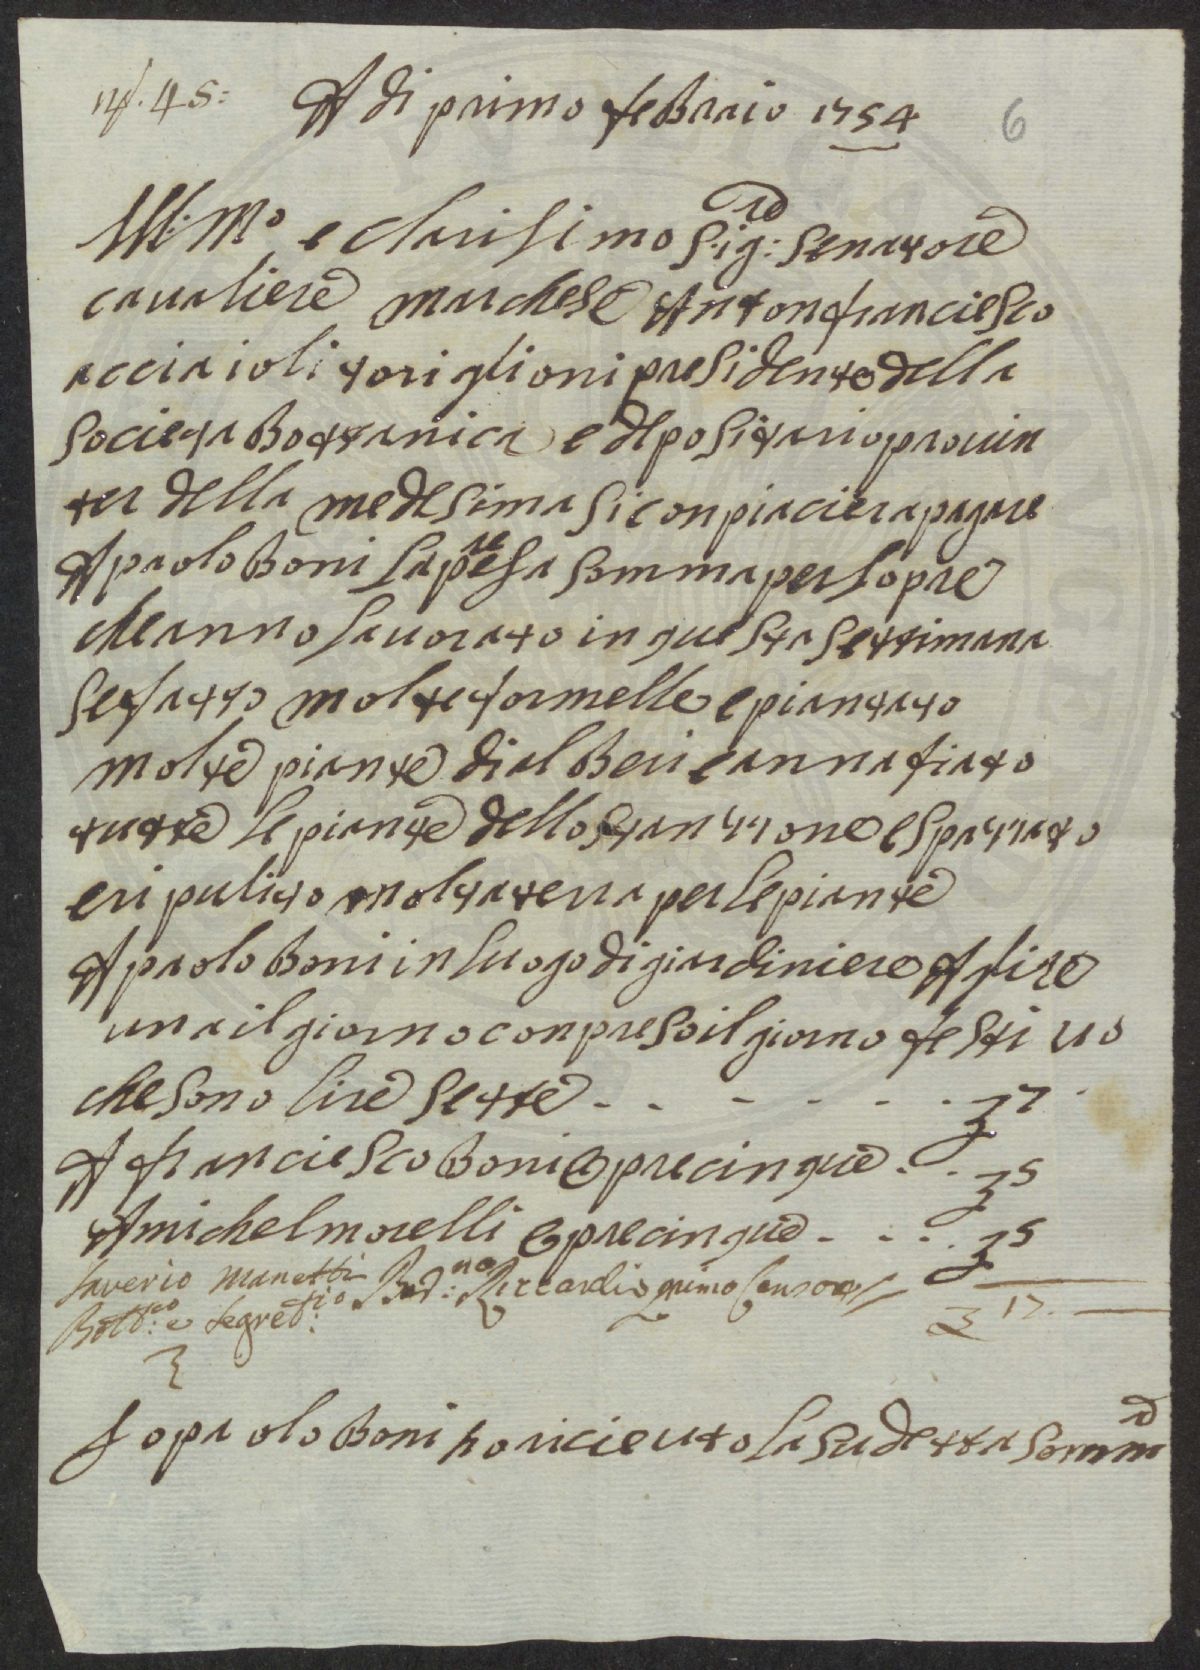 nº. 45: A di primo feBraio 1754 6
Ill: Mo e clarisimo Sig:re Senatore
cavaliere marchese Antonfranciesco
acciaioli toriglioni presidente della
Societa Bottanica e depositario provin
ter della medesima si conpiaciera pagare
A paolo Boni la presa somma per lopre
che anno lavorato in questa settimana
se fatto molte formelle e piantato
molte piante di alBeri e annafiato
tutte le piante dello stanzzone e spazzato
e ripulito molta terra per le piante
A paolo Boni in luogo di giardiniere A lire
una il giorno conpreso il giorno festivo
che sono lire sette - - - - - - - 7
A franciesco Boni Opre cinque - - - 5
A michel morelli Opre cinque - - - - 5
Saverio Manetti Bed:no Riccardi primo Censore
Bott:co e Segret:rio 17. —
Io paolo Boni ho ricievuto la sudetta somm